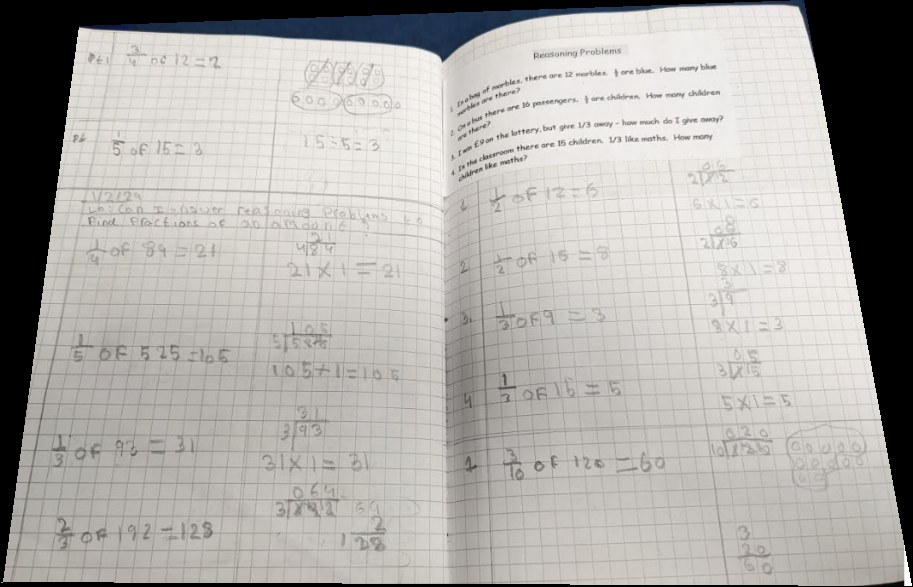 3/4 of 12 = 2
1/5 of 15 = 3
15 ÷ 5 = 3
LO: Can I answer reasoning problems to
find fractions of an amount?
1/4 of 84 = 21
21
4 84
21 × 1 = 21
1/5 of 525 = 105
105
105 + 1 = 105
1/3 of 93 = 31
31
3 93
31 × 1 = 31
2/3 of 192 = 128
064
64
2
128
Reasoning Problems
1. In a bag of marbles, there are 12 marbles. are blue. How many blue
marbles are there?
2. On a bus there are 16 passengers. are children. How many children
are there?
3. I win £9 on the lottery, but give 1/3 away - how much do I give away?
4. In the classroom there are 15 children. 1/3 like maths. How many
children like maths?
1/2 of 12 = 6
06
6 × 1 = 6
2 1/2 of 15 = 8
08
8 × 1 = 8
3. 1/3 of 9 = 3
3
3 9
× 1 = 3
4 1/3 of 15 = 5
05
3 15
5 × 1 = 5
3/10 of 120 = 60
020
3
20
60